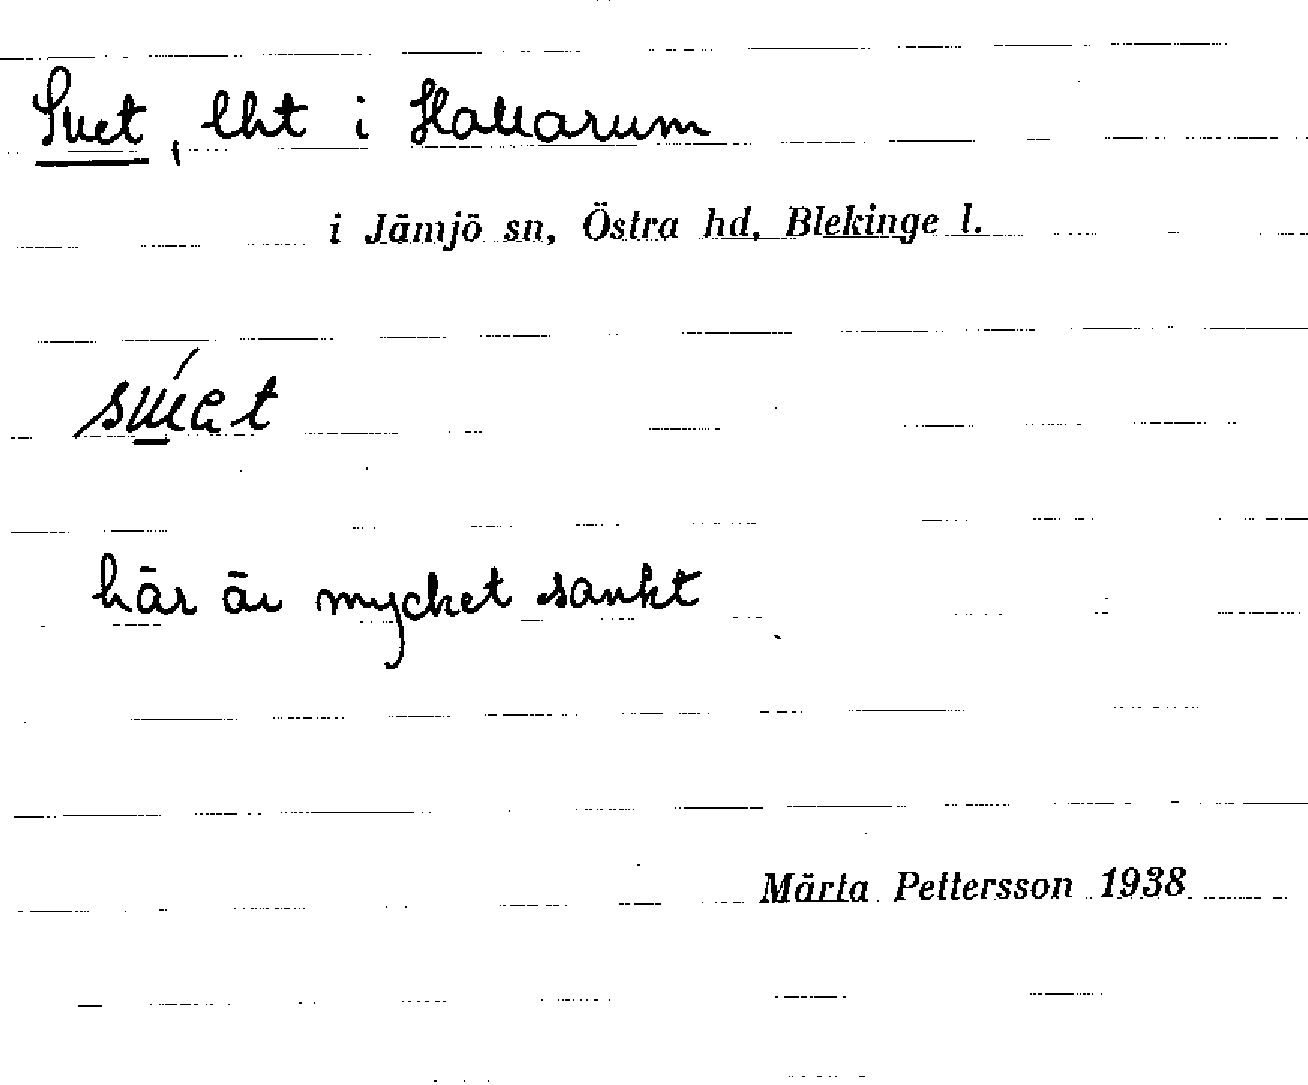 , lht i Hallarum
i Jämjö sn, Östra hd, Blekinge l.
här är mycket sankt
Märta Pettersson 1938